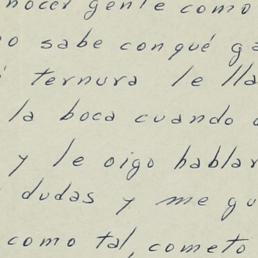 nocer gente como
no sabe con qué
ternura le lla
la boca cuando
y le oigo hablar
dudas y me gu
como tal, cometo